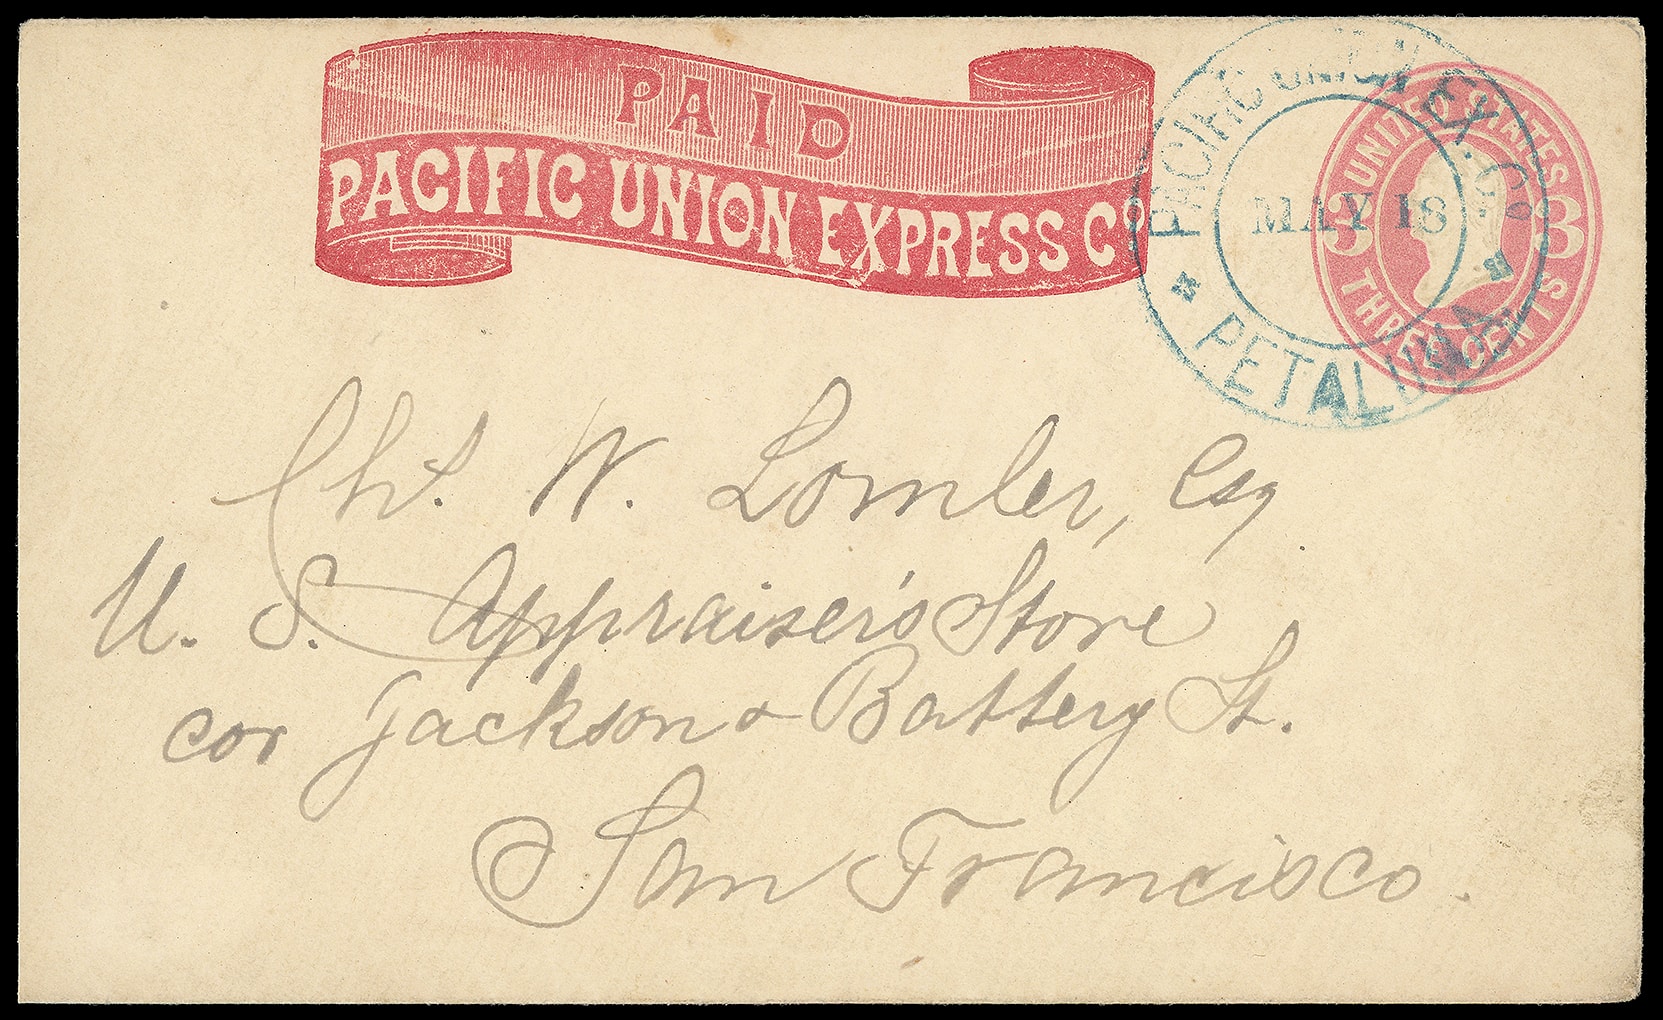 PAID
PACIFIC UNION EXPRESS Co
PACIFIC UNION EX. Co.
MAY 18
PETALUMA
UNITED STATES
3 3
THREE CENTS
Chs. W. Lomler, Esq.
U. S. Appraiser's Store
cor Jackson & Battery St.
San Francisco.